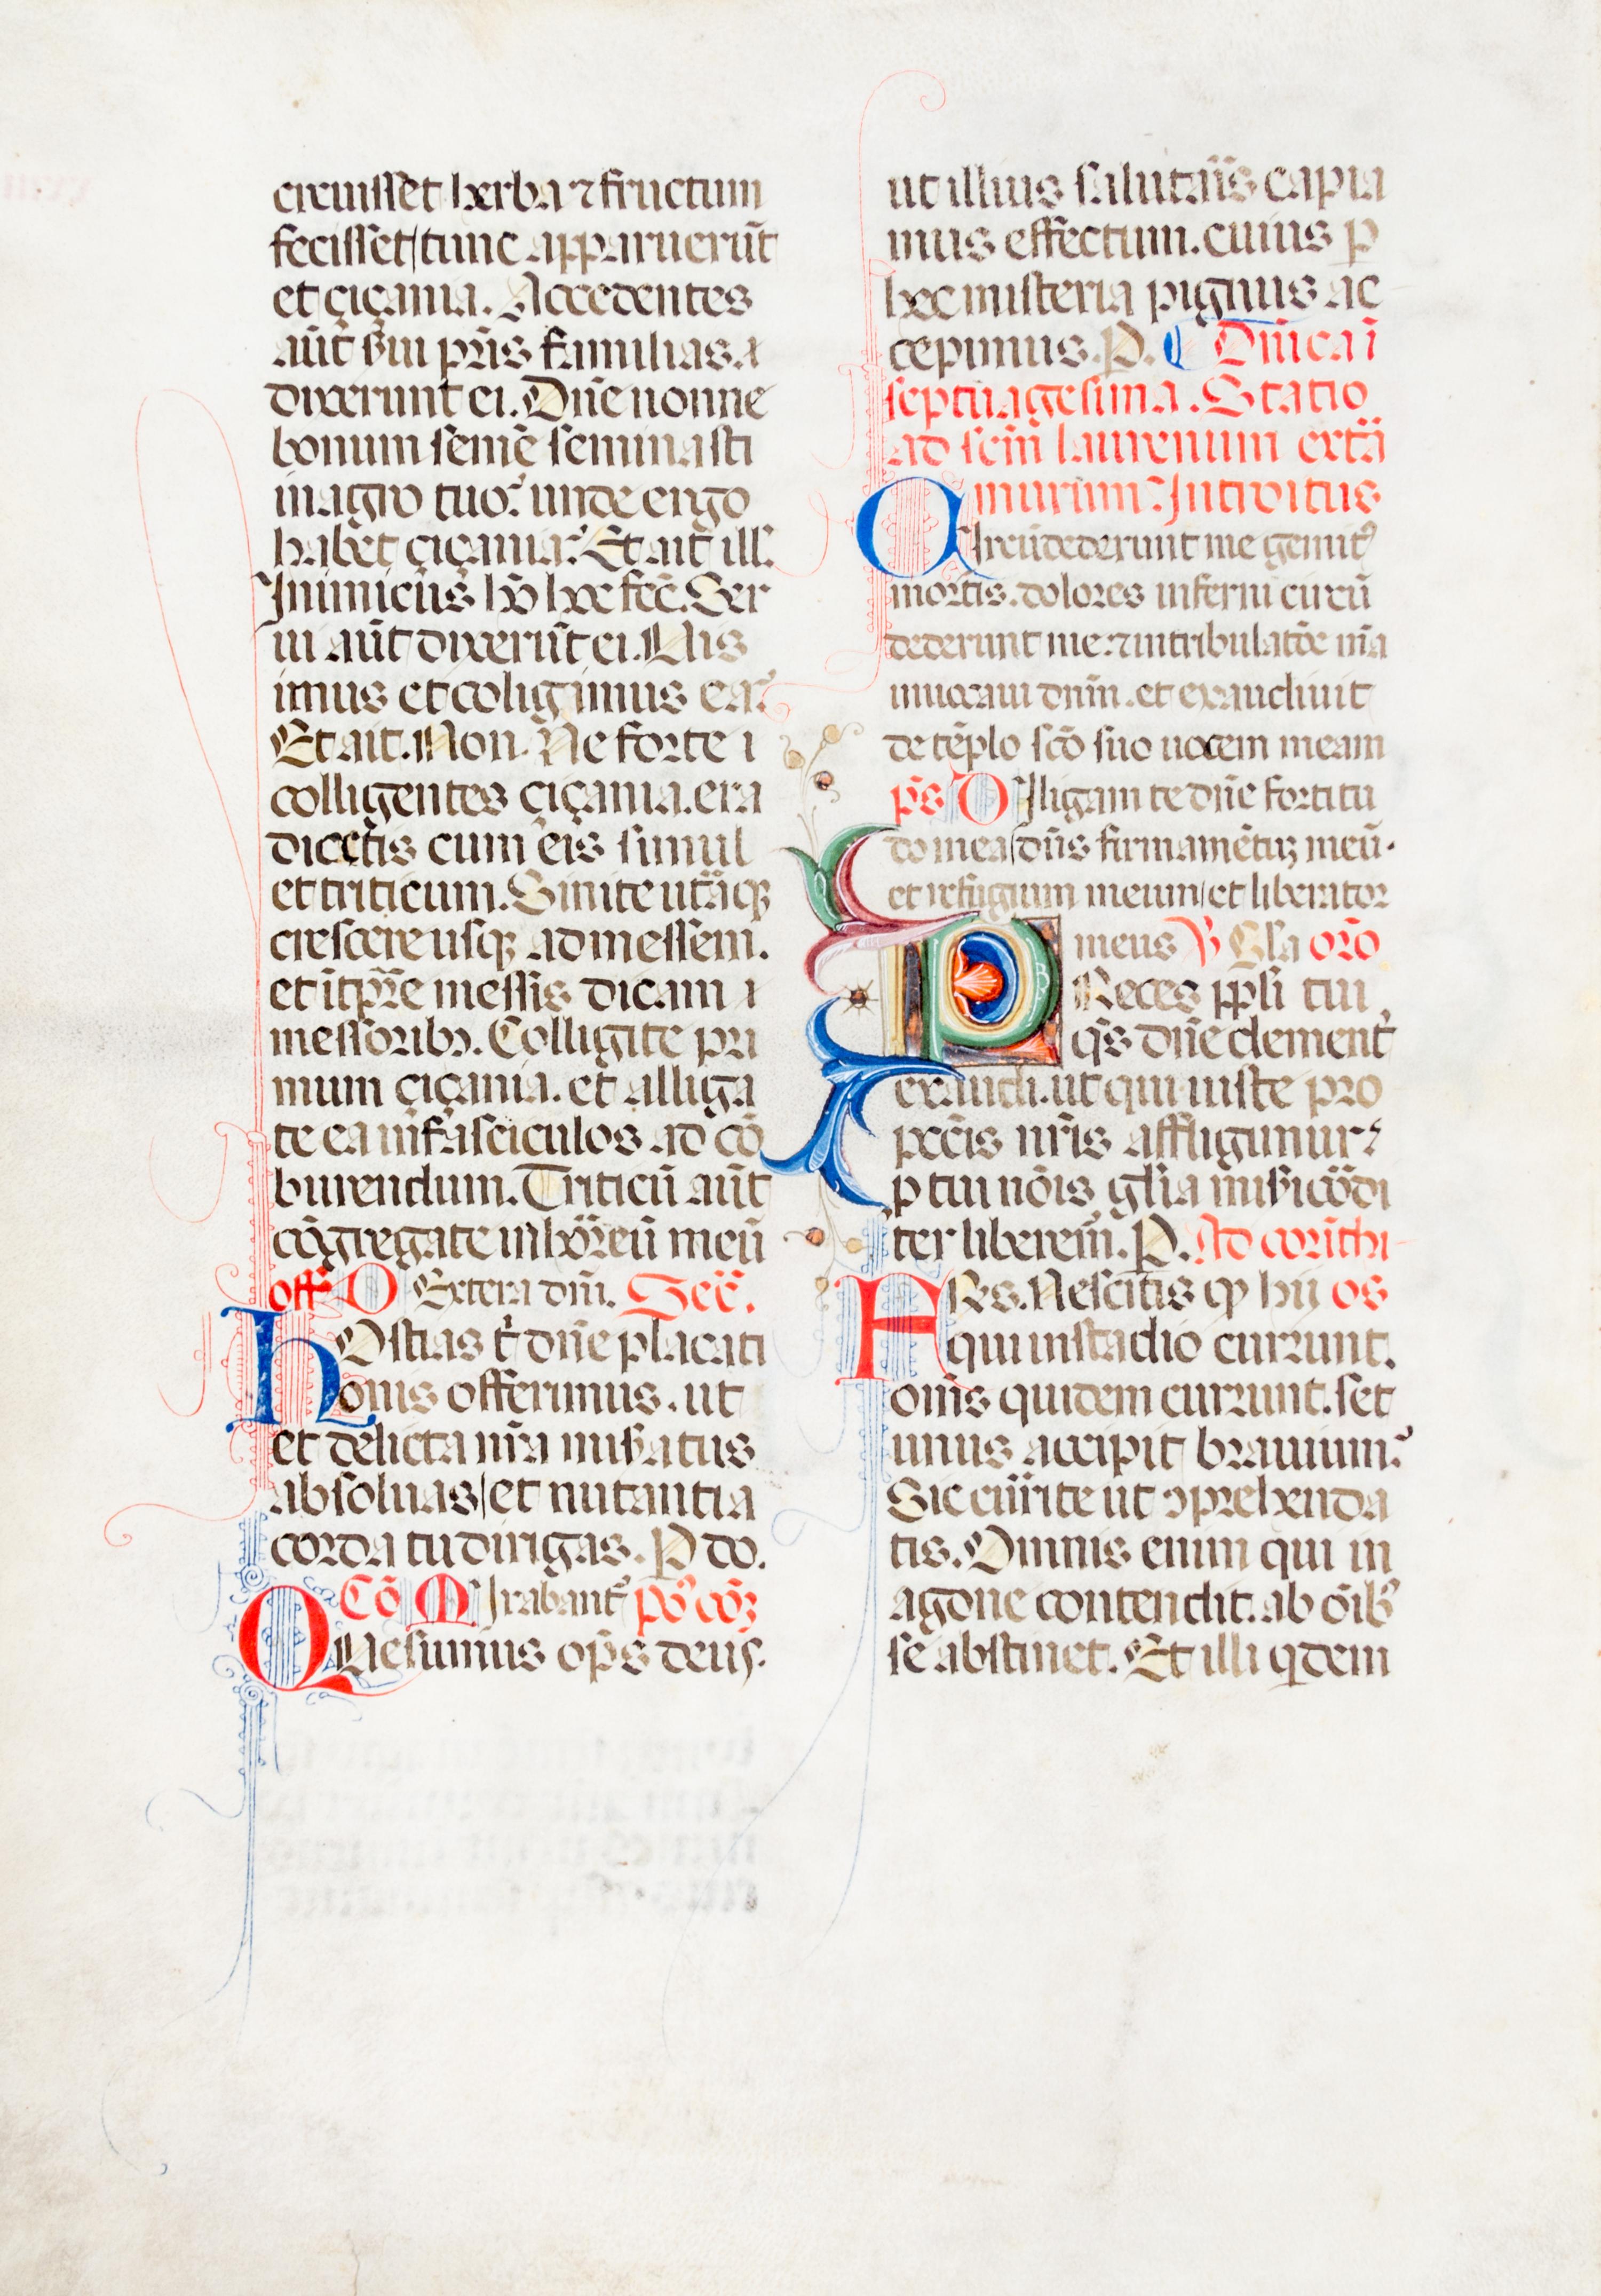 creuisset herba ⁊ fructum
fecisset/tunc apparuerūt
et çiçania. Accedentes
aūt s̄ui pr̄is familias.a
dixerunt ei. Dn̄e nonne
bonum semē seminasti
in agro tuo? unde ergo
habet çiçania? Et ait ill'.
Inimicus hō hoc fec̄. Ser
ui aūt dixerūt ei. Uis
imus et coligimus ea?
Et ait. Non. Ne forte i
colligentes çiçania. era
dicetis cum eis simul
et triticum. Sinite utraqꝫ
crescere usqꝫ ad messem.
et ī tp̄re messis dicam i
messoribꝰ. Colligite pri
mum çiçania. et alliga
te ea in fasciculos ad cō
burendum. Triticū aūt
cōgregate in horreū meū
off̄ Dextera dn̄i. Secᷓ.
hOstias t' dn̄e placati
onis offerimus. ut
et delicta nr̄a mis̄atus
absoluas/et nutantia
corda tu dirigas. P do.
Cō Mirabant' pꝰ cōꝫ
QUesumus op̄s deus.
ut illius salutaris capia
mus effectum. cuius ꝑ
hec misteria pignus ac
cepimus. P. Dn̄ica i
septuagesima. Statio
ad scm̄ laurenium extᷓ
murum? Introitus
CIrcūdederunt me gemitꝰ
mortis. dolores inferni circū
dederunt me: ⁊ in tribulatōe mᷓa
inuocaui dnm̄. et exaudiuit
de tēplo scō suo uocem meam
ps̄ DIligam te dn̄e fortitu
do mea/dn̄s firmamētuꝫ meū.
et refugium meum/et liberator
meus ℣ Gl̄a orō
PReces ppl̄i tui
qs̄ dn̄e clement'
exaudi. ut qui iuste pro
pecc̄is nr̄is affligimur:
ꝓ tui nōis gl̄ia mis̄icordi
ter liberem̄. P. Ad corīthi
FRs. Nescitis ꝙ hij os
qui in stadio currunt.
om̄s quidem currunt. set
unus accipit brauium?
Sic currite ut ↄprehenda
tis. Omnis enim qui in
agone contendit. ab oībꝰ
se abstinet. Et illi qͥdem